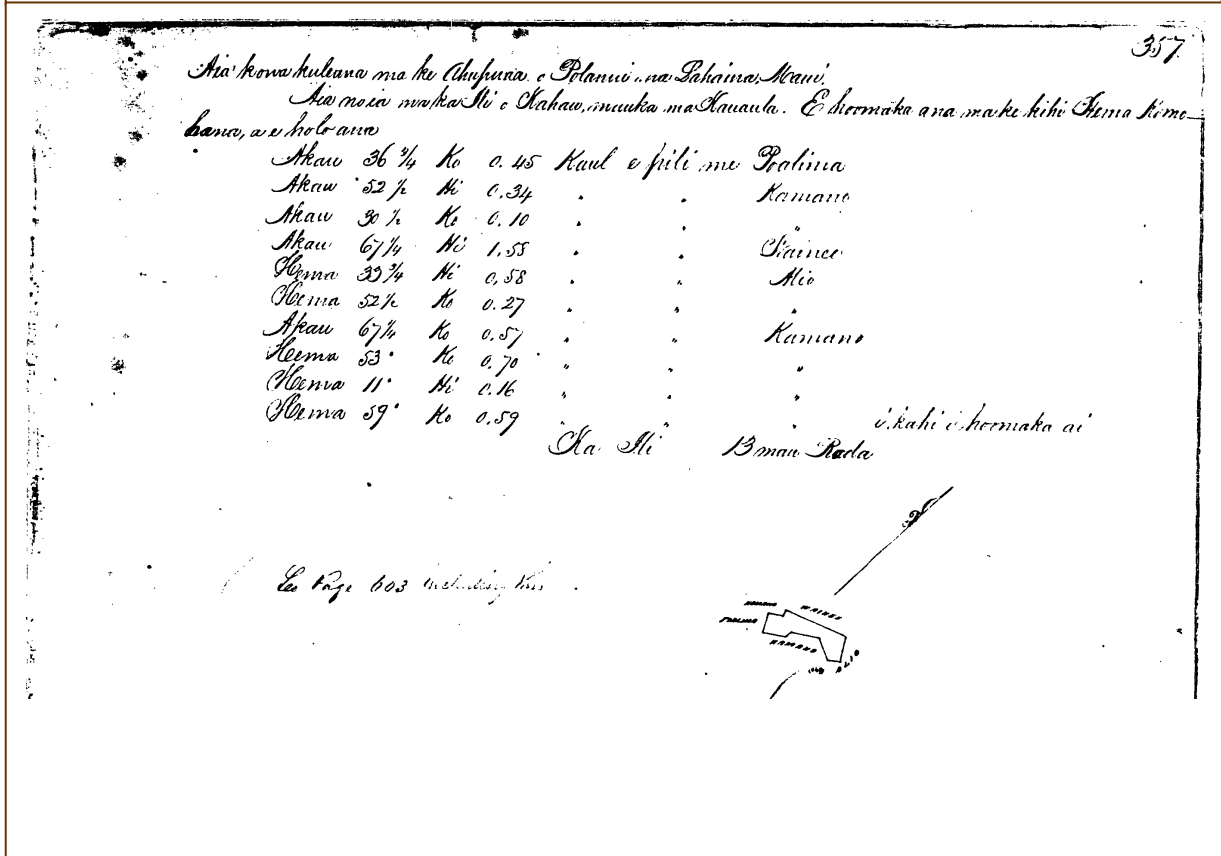 357.
Aia kona kuleana ma ke Ahupuaa o Polanui ma Lahaina, Maui.
Aia no ia ma ka Ili o Kahau, mauka ma Kauaula. E hoomaka ana ma ke kihi Hema Komo-
hana, a e holo ana
Akau 36 3/4 Ko 0.45 Kaul e pili me Poalima
Akau 52 1/2 Hi 0.34 " " Kamano
Akau 30 1/2 Ko 0.10 " " "
Akau 67 1/4 Hi 1.55 " " Wainee
Hema 33 3/4 Hi 0.58 " " Alio
Hema 52 1/2 Ko 0.27 " " "
Akau 67 1/4 Ko 0.57 " " Kamano
Hema 53° Ko 0.70 " " "
Hema 11° Hi 0.16 " " "
Hema 59° Ko 0.59 " " " i kahi i hoomaka ai
Ka Ili 13 mau Roda
See Page 603 including this
KAMANO WAINEE
POALIMA
KAMANO
ALIO